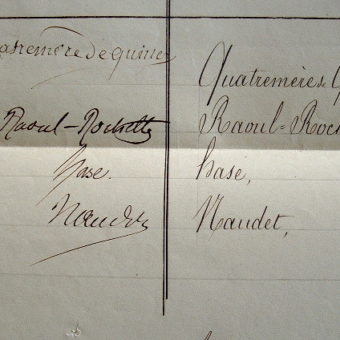 Quatremère de Quincy
Raoul-Rochette
hase.
Naudet
Quatremère de Q
Raoul-Roch
hase,
Naudet,